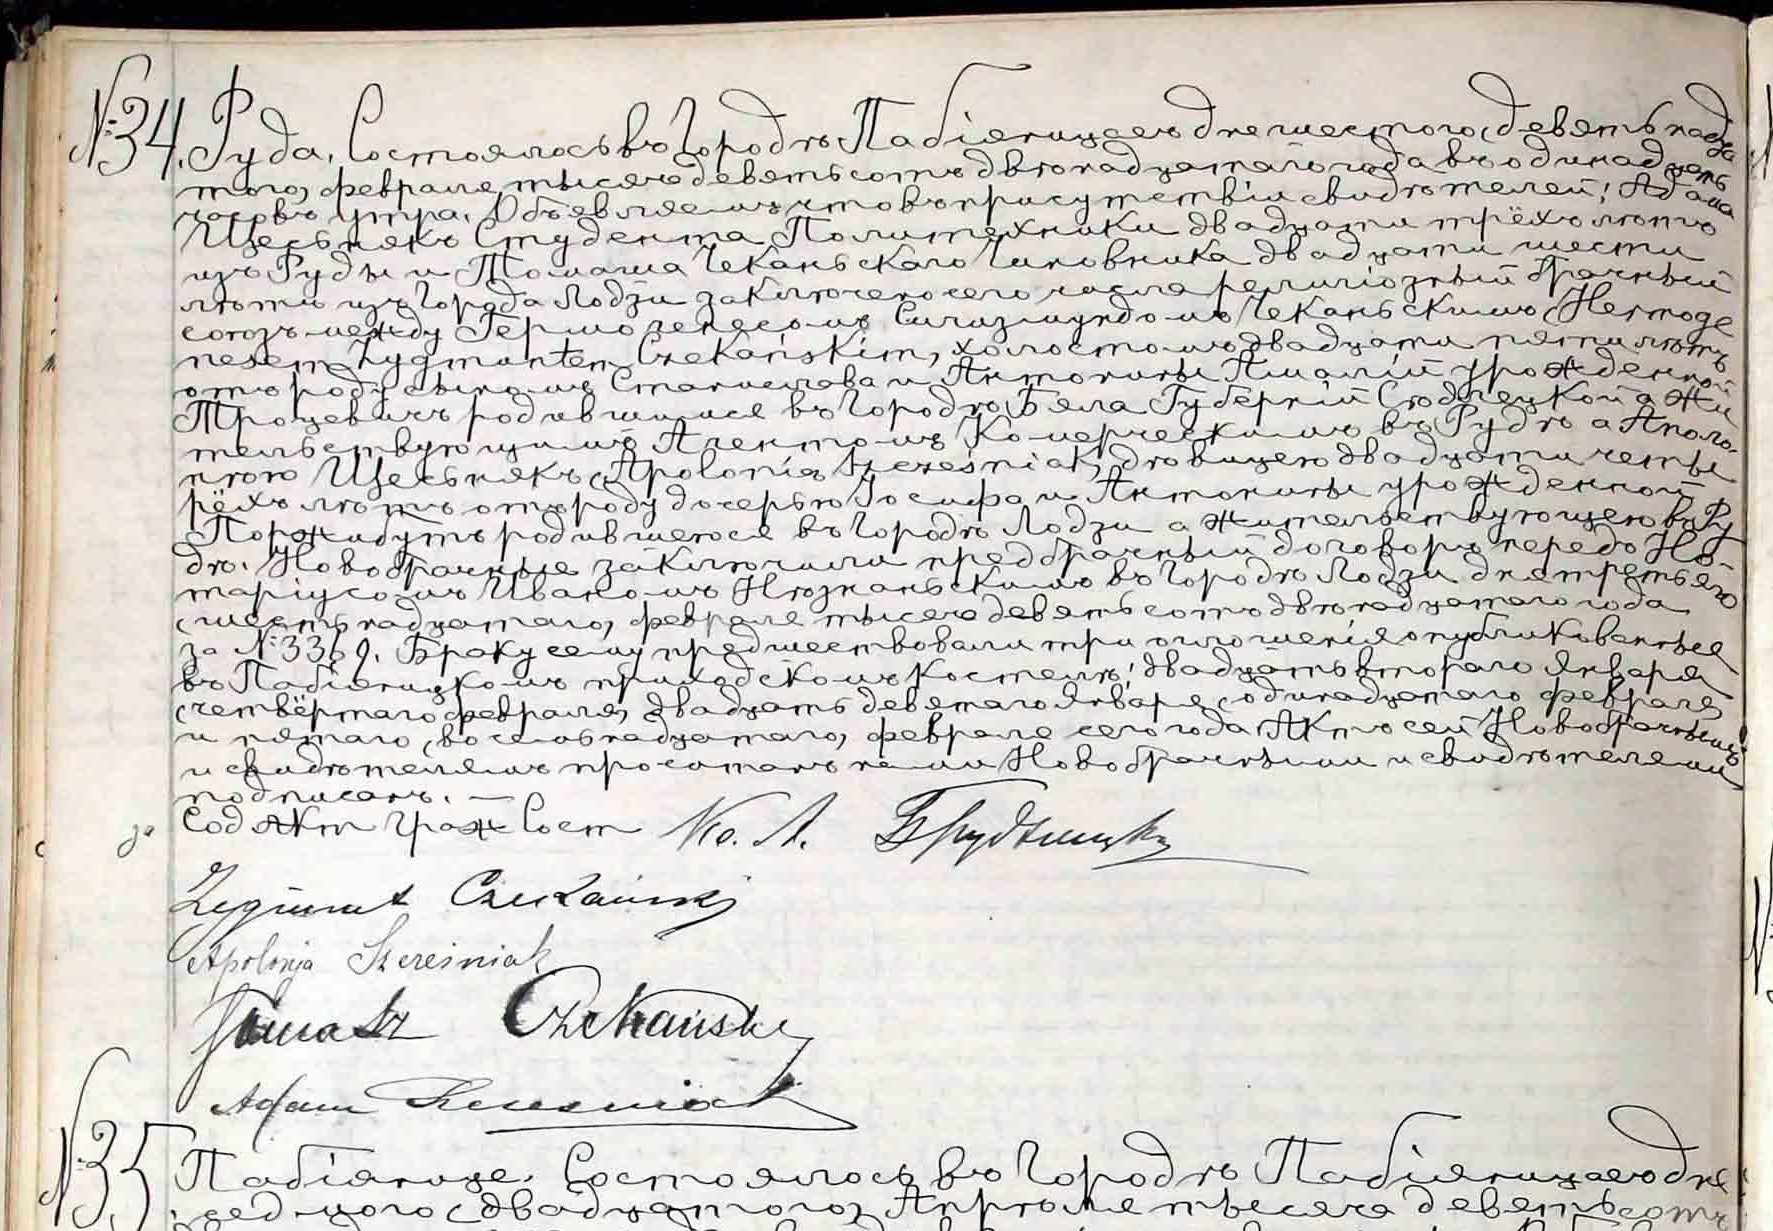 №34. Руда. Состоялось въ городѣ Пабіяницаеъ дня шестого (девятнадца
того) февраля тысяча девятьсотъ двѣнадцатаго года въ одинадцать
часовъ утра. Объявляемъ что въ присутствіи свидѣтелей: Адама
Щесьнякъ Студента Политехники двадцати трёхъ лѣтъ
изъ Руды и Томаша Чеканьскаго Чиновника двадцати шести
лѣтъ изъ города Лодзи заключено сего числа религіозный брачный
союзъ между Гермогенесомъ Сигизмундомъ Чеканьскимъ (Hermoge
nesem Zygmuntem Czekańskim), холостомъ двадцати пяти лѣтъ
отъ роду сыномъ Станислава и Антонины Амаліи урожденной
Троцевичъ родившимся въ городѣ Бяла Губерніи Сѣдлецкой а жи
тельствующимъ Агентомъ Комерческимъ въ Рудѣ а Аполо
ніею Щесьнякъ (Apolonią Szcześniak) дѣвицею двадцати четы
рёхъ лѣтъ отъ роду дочерью Іосифа и Антонины урожденной
родившеюся въ городѣ Лодзи а жительствующею въ Ру
дѣ. Новобрачные заключили предбрачный договоръ передъ Но-
таріусомъ Иваномъ въ городѣ Лодзи дня третьяго
(шестнадцатаго) февраля тысяча девятьсотъ двѣнадцатаго года
за №: 336 Браку сему предшествовали три оглошенія опубликованныя
въ Пабіяницкомъ приходскомъ костелѣ: двадцать втораго Января
(четвёртаго февраля), двадцать девятаго Января (одинадцатаго февраля)
и пятаго (восемьнадцатаго) февраля сего года Актъ сей Новобрачнымъ
и свидѣтелямъ прочитанъ нами Новобрачными и свидѣтелями
подписанъ. —
за Сод Акт Граж Сост Кс. А.
Zygmunt Czekański
Apolonja Szcześniak
Tomasz Czekański
Adam Szcześniak
№35 Пабіянице. Состоялось въ городѣ Пабіяницаеъ дня
седьмого (двадцатого) Апрѣля тысяча девятьсотъ